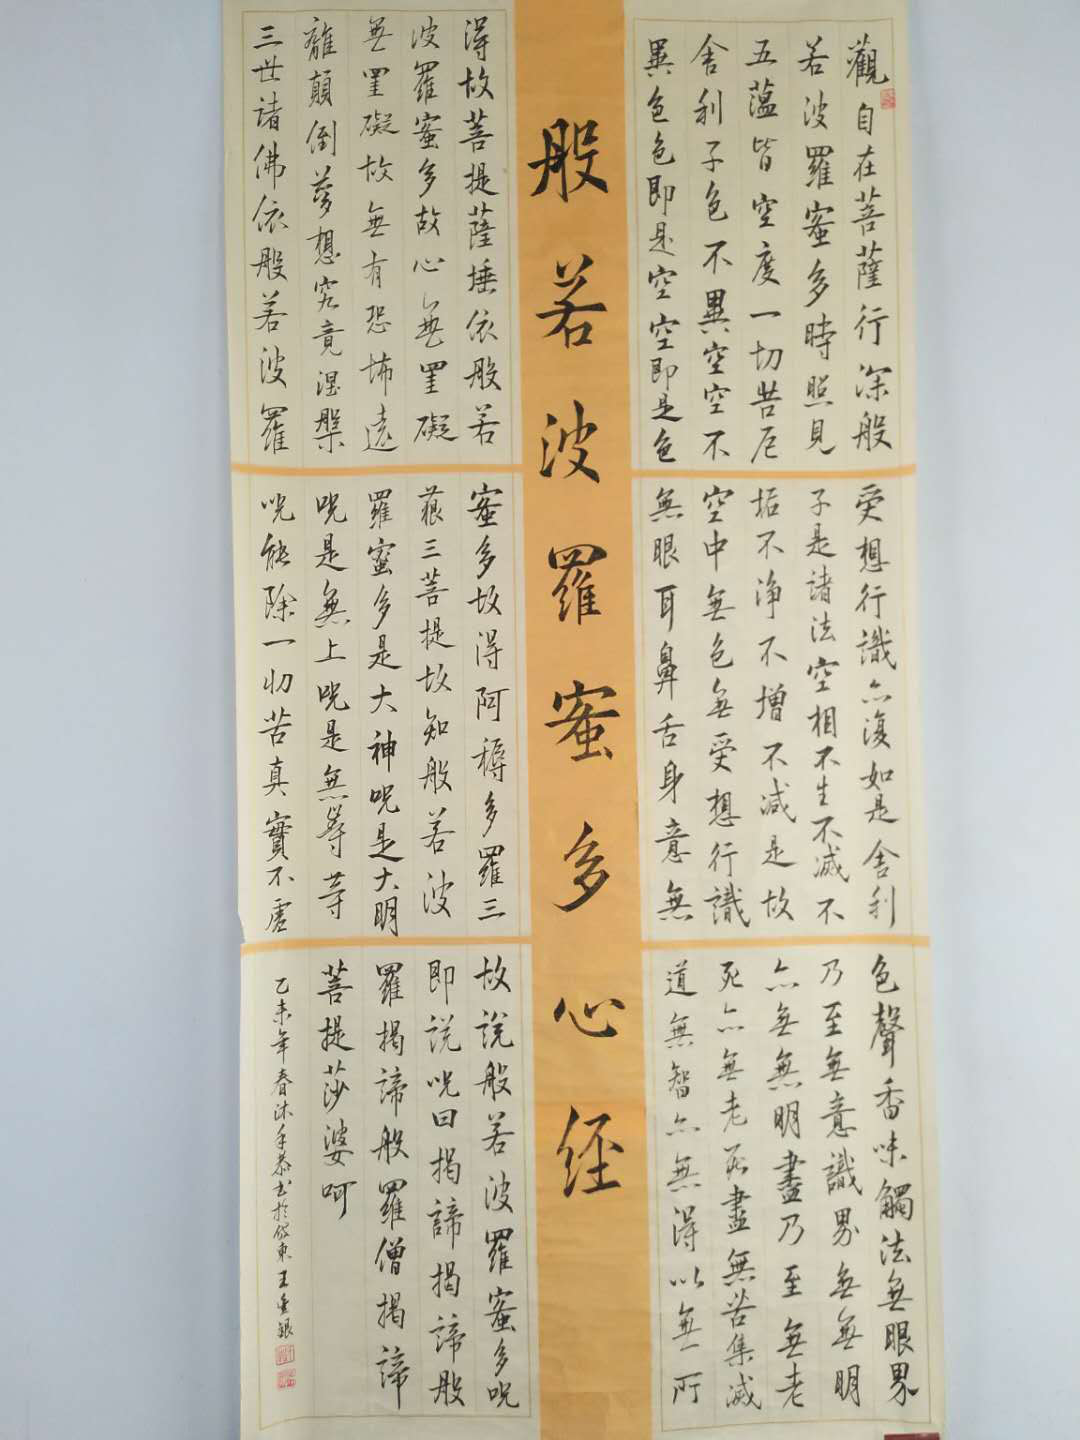 般若波羅蜜多心経
觀自在菩薩行深般
若波羅蜜多時照見
五蘊皆空度一切苦厄
舍利子色不異空空不
異色色即是空空即是色
受想行識亦復如是舍利
子是諸法空相不生不滅不
垢不淨不增不減是故
空中無色無受想行識
無眼耳鼻舌身意無
色聲香味觸法無眼界
乃至無意識界無無明
亦無無明盡乃至無老
死亦無老死盡無苦集滅
道無智亦無得以無所
得故菩提薩埵依般若
波羅蜜多故心無罣礙
無罣礙故無有恐怖遠
離顛倒夢想究竟涅槃
三世諸佛依般若波羅
蜜多故得阿耨多羅三
藐三菩提故知般若波
羅蜜多是大神咒是大明
咒是無上咒是無等等
咒能除一切苦真實不虛
故說般若波羅蜜多咒
即說咒曰揭諦揭諦般
羅揭諦般羅僧揭諦
菩提莎婆呵
乙未年春沐手恭书於岱東王銀